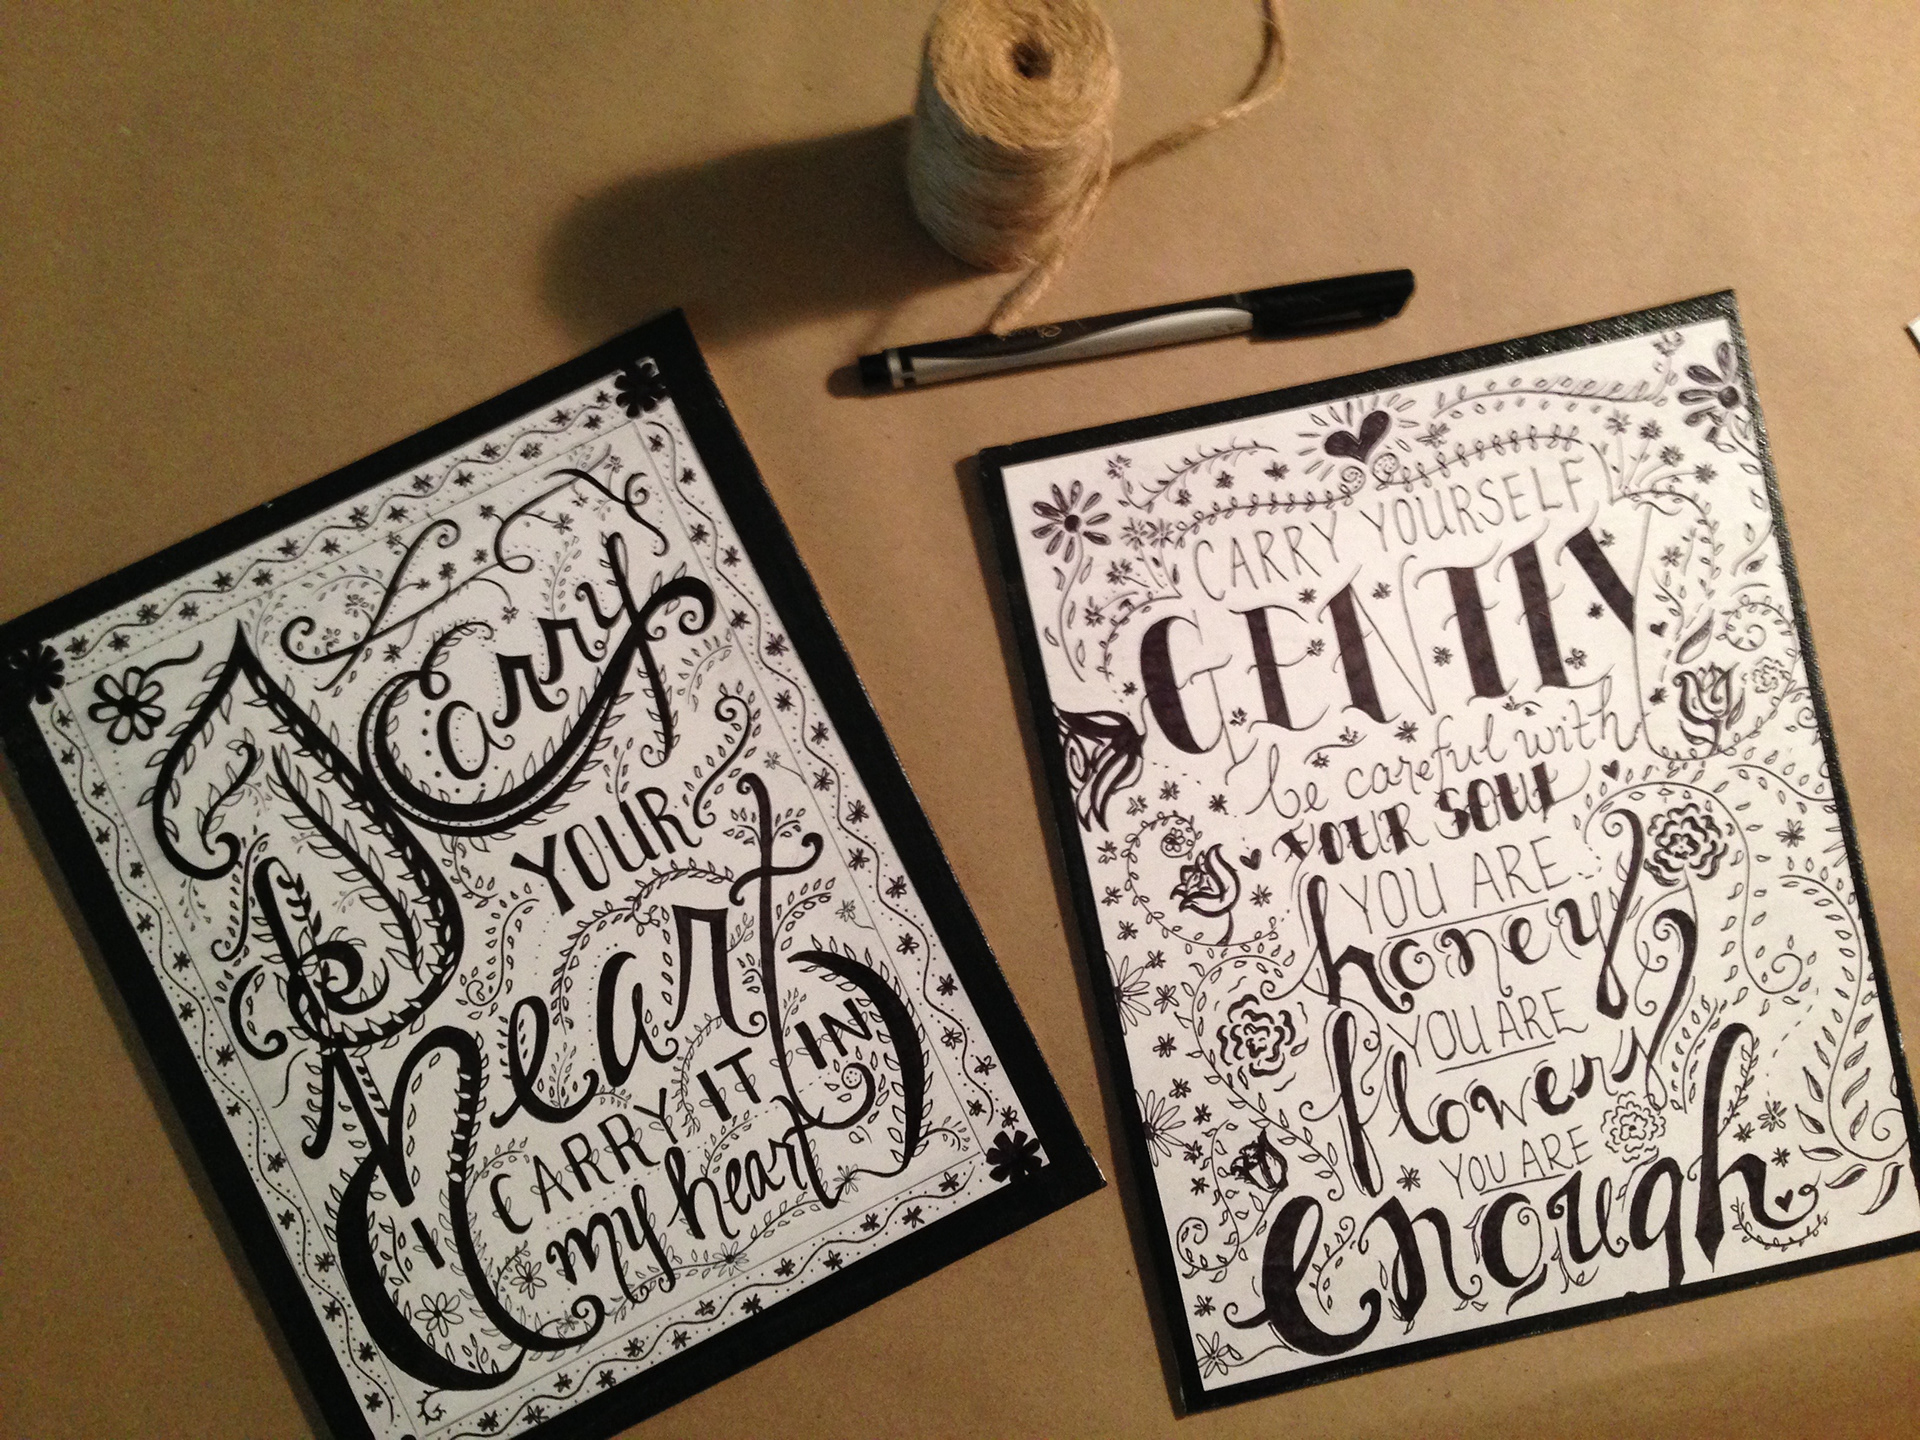 I Carry
YOUR
heart
I CARRY IT IN
my heart
CARRY YOURSELF
GENTLY
be careful with
YOUR SOUL
YOU ARE
honey
YOU ARE
flowers
YOU ARE
enough